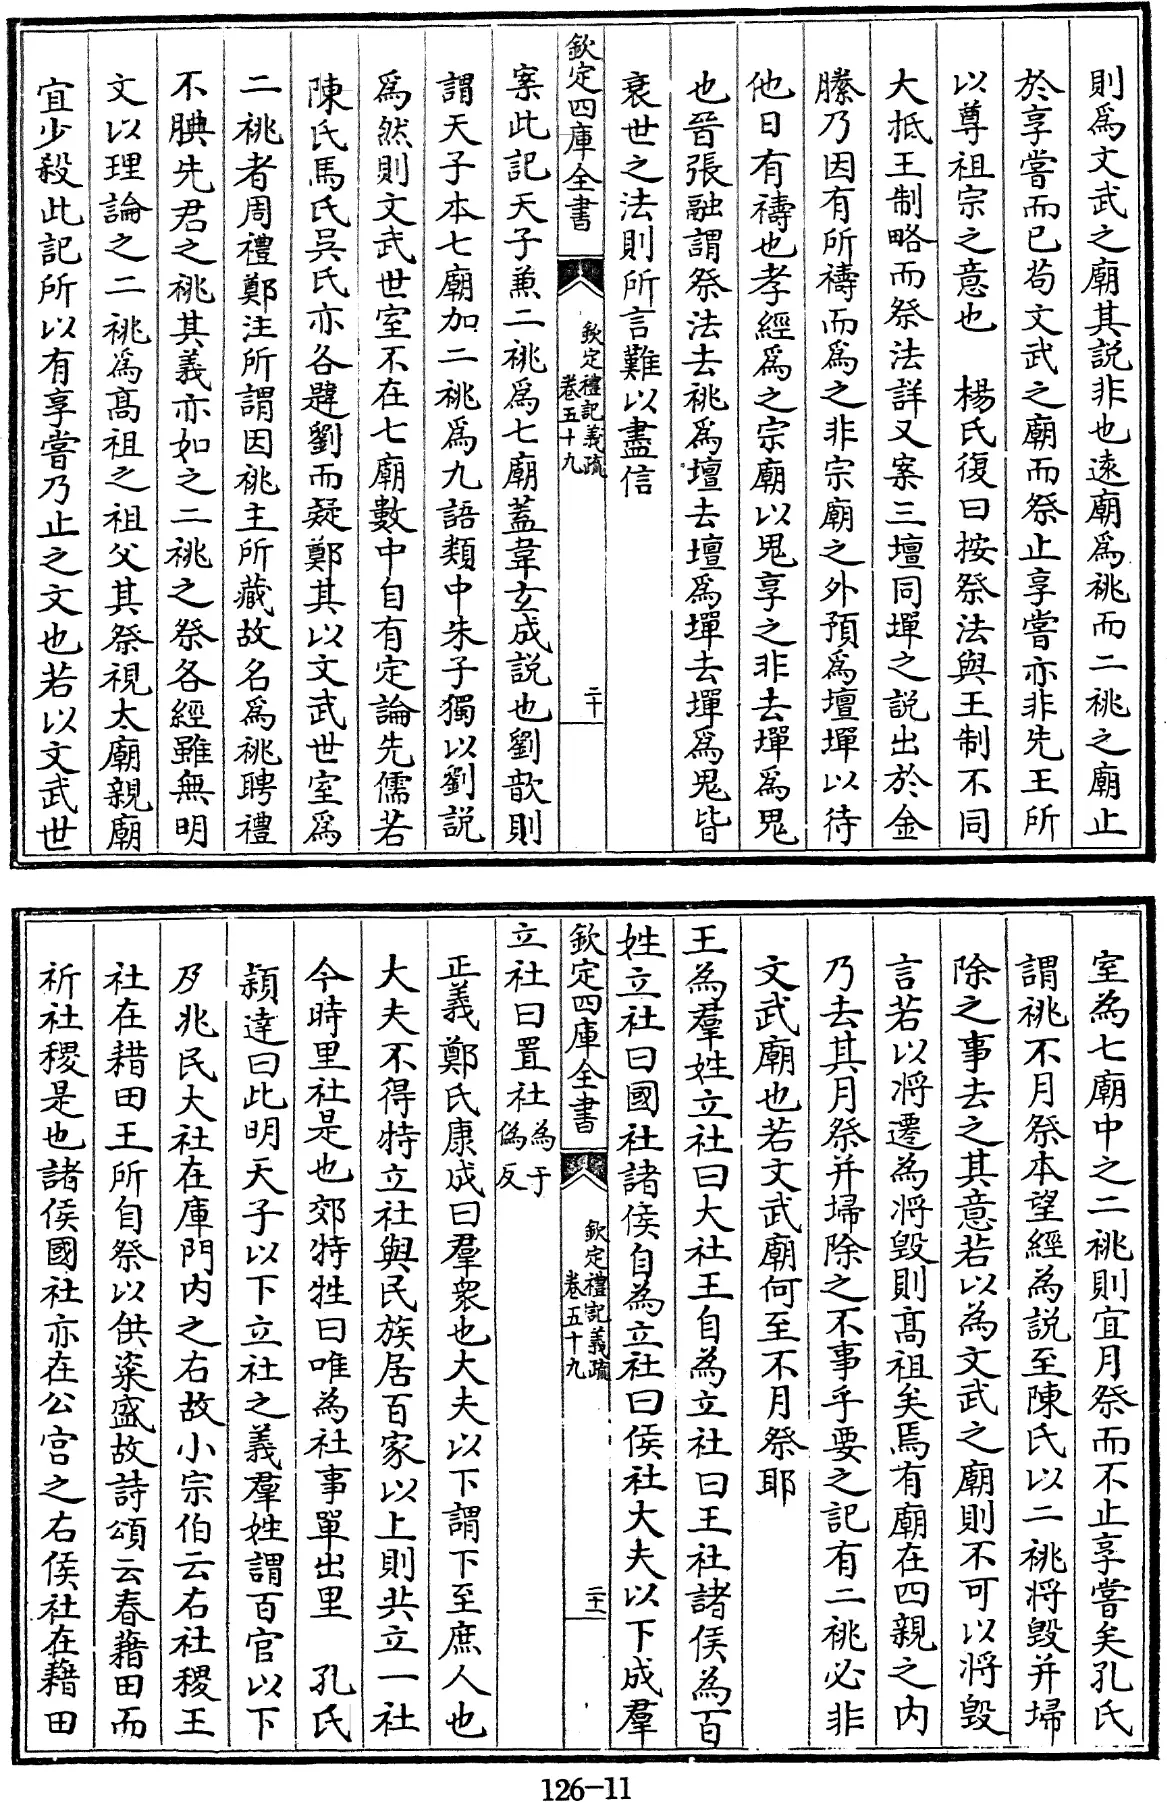 則爲文武之廟其説非也逺廟爲祧而二祧之廟止
於享嘗而已茍文武之廟而祭止享嘗亦非先王所
以尊祖宗之意也　楊氏復曰按祭法與王制不同
大抵王制略而祭法詳又案三壇同墠之説出於金
縢乃因有所禱而爲之非宗廟之外預爲壇墠以待
他日有禱也孝經爲之宗廟以鬼享之非去墠爲鬼
也晉張融謂祭法去祧爲壇去壇爲墠去墠爲鬼皆
衰世之法則所言難以盡信
欽定四庫全書
欽定禮記義疏
卷五十九
二十
案此記天子兼二祧爲七廟蓋韋玄成説也劉歆則
謂天子本七廟加二祧爲九語類中朱子獨以劉説
爲然則文武世室不在七廟數中自有定論先儒若
陳氏馬氏吳氏亦各韙劉而疑鄭其以文武世室爲
二祧者周禮鄭注所謂因祧主所藏故名爲祧聘禮
不腆先君之祧其義亦如之二祧之祭各經雖無明
文以理論之二祧爲高祖之祖父其祭視太廟親廟
宜少殺此記所以有享嘗乃止之文也若以文武世
室為七廟中之二祧則宜月祭而不止享嘗矣孔氏
謂祧不月祭本望經為説至陳氏以二祧將毁并埽
除之事去之其意若以為文武之廟則不可以將毁
言若以將遷為將毁則高祖矣焉有廟在四親之内
乃去其月祭并埽除之不事乎要之記有二祧必非
文武廟也若文武廟何至不月祭耶
王為羣姓立社曰大社王自為立社曰王社諸侯為百
姓立社曰國社諸侯自為立社曰侯社大夫以下成羣
欽定四庫全書
欽定禮記義疏
卷五十九
二十一
立社曰置社為于
偽反
正義鄭氏康成曰羣衆也大夫以下謂下至庶人也
大夫不得特立社與民族居百家以上則共立一社
今時里社是也郊特牲曰唯為社事單出里　孔氏
穎達曰此明天子以下立社之義羣姓謂百官以下
及兆民大社在庫門内之右故小宗伯云右社稷王
社在耤田王所自祭以供粢盛故詩頌云春藉田而
祈社稷是也諸侯國社亦在公宮之右侯社在藉田
126-11